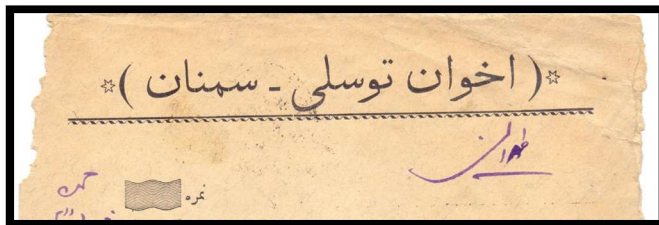 ( اخوان توسلی - سمنان )
طهران
نمره